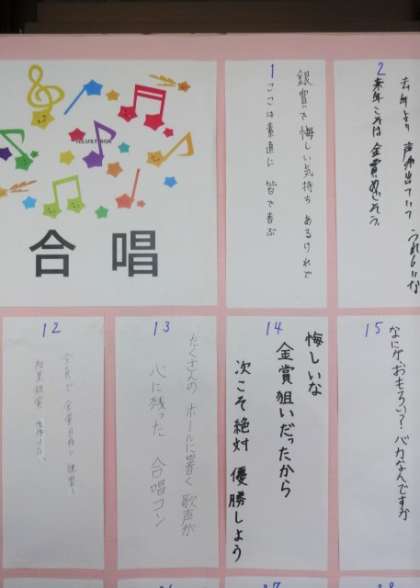 合唱
1
銀賞で悔しい気持ち あるけれど
ここは素直に 皆で喜ぶ
2
去年より 声が出ていて うれしいな
来年こそは 金賞めざそう
12
全員で 金賞目指し 練習し
13
たくさんの ホールに響く 歌声が
心に残った 合唱コン
14
悔しいな
金賞狙いだったから
次こそ絶対 優勝しよう
15
なにが、おもろい？ バカなんですか